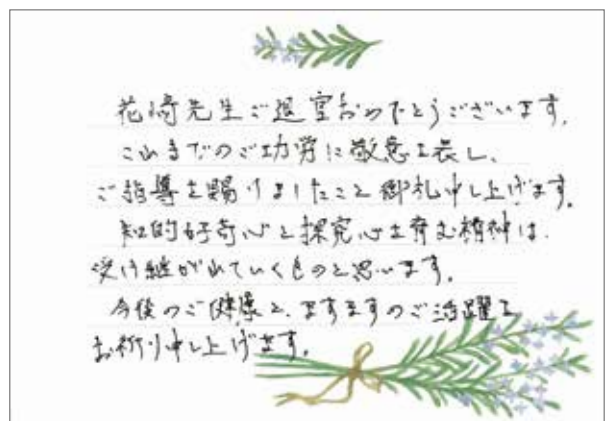 花崎先生ご退官おめでとうございます。
これまでのご功労に敬意を表し、
ご指導を賜りましたこと御礼申し上げます。
知的好奇心と探究心を育む精神は、
受け継がれていくものと思います。
今後のご健康と、ますますのご活躍を
お祈り申し上げます。